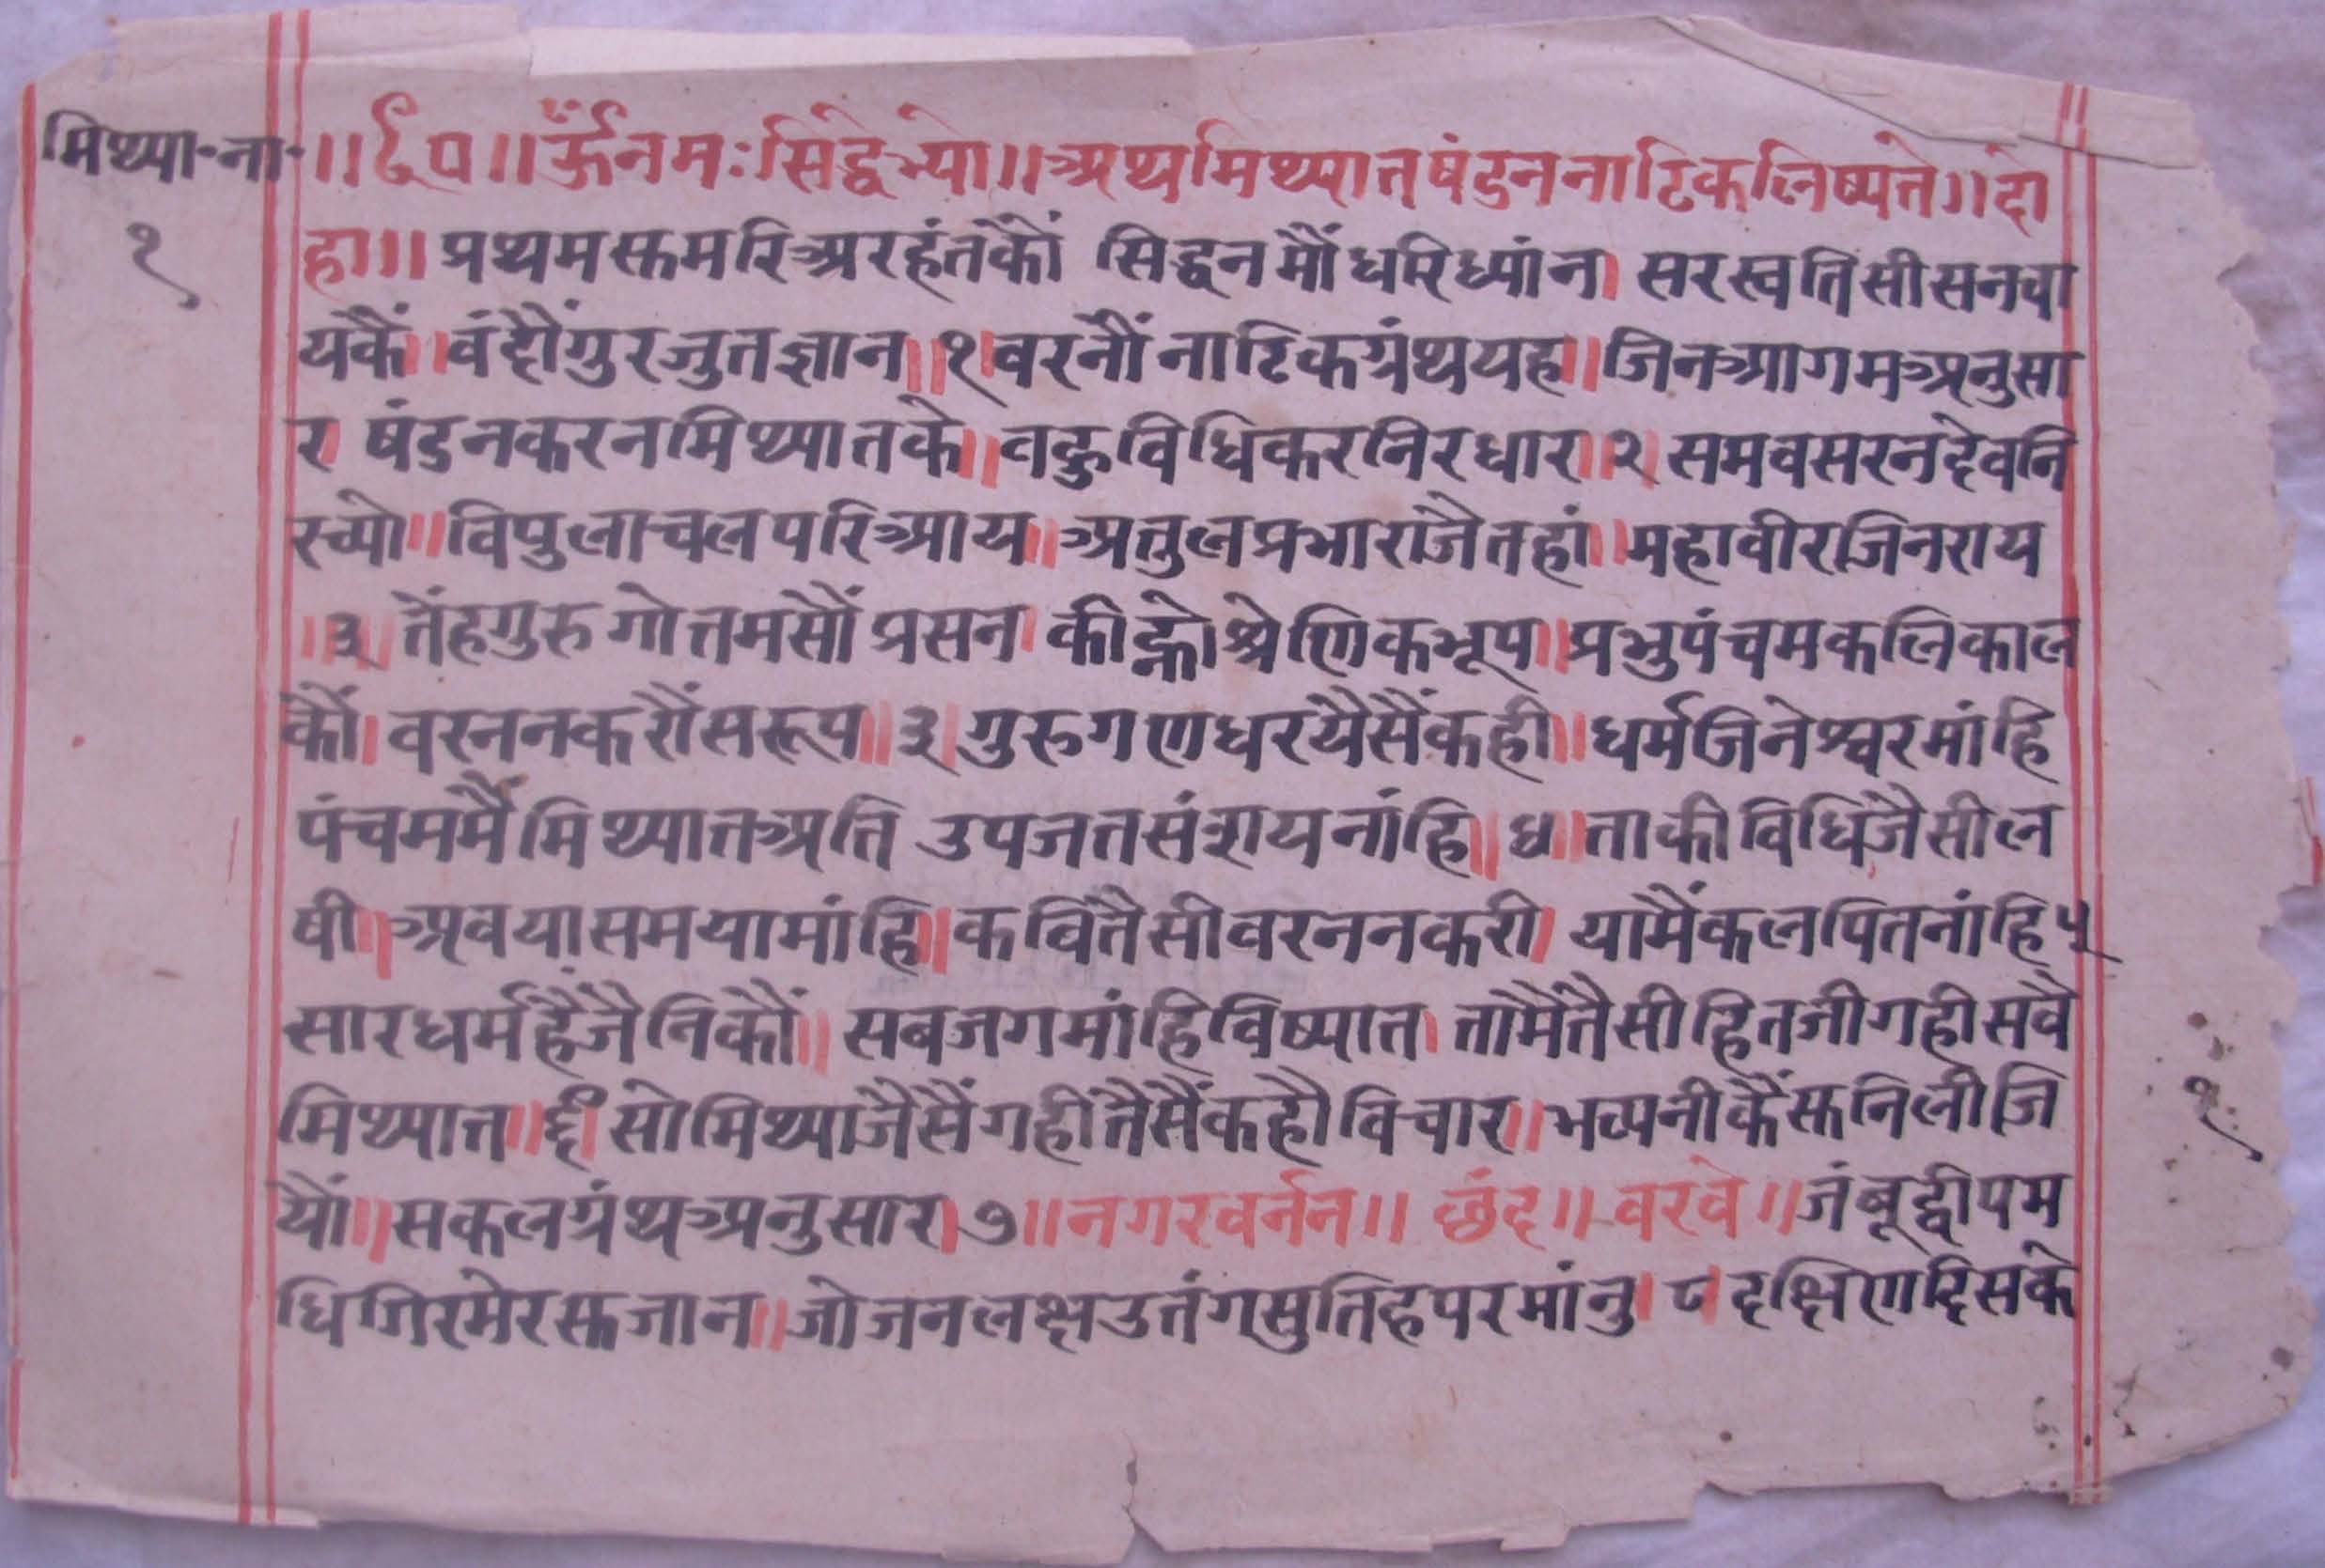 मिथ्या-ना-
१
॥६०॥ ॐनमःसिद्धेभ्यो॥ अथमिथ्यातषंडननाटिकलिष्यते॥दो
हा॥ प्रथमसुमरिअरहंतकौं सिद्धनमौंधरिध्यांन। सरस्वतिसीसनवा
यकैं॥वंदौंगुरजुतज्ञान॥१।वरनौंनाटिकग्रंथयह॥जिनआगमअनुसा
र। षंडनकरनमिथ्यातके॥वहुविधिकरनिरधार॥२।समवसरनदेवनि
रच्यो॥विपुलाचलपरिआय॥अतुलप्रभाराजैतहां॥महावीरजिनराय
॥३॥तेंहगुरुगोत्तमसौंप्रसन। कीह्नोश्रेणिकभूप॥प्रभुपंचमकलिकाल
कौं।वरननकरौंसरूप॥३।गुरुगणधरयैसैंकही॥धर्मजिनेश्वरमांहि
पंचममैंमिथ्यातअति उपजतसंशयनांहि॥४॥ताकीविधिजैसील
षी॥अवयासमयामांहि॥कवितैसीवरननकरी। यामैंकलपितनांहि५
सारधर्महैंजैनिकौं॥सबजगमांहिविष्यात।तामैंतैसीहितजीगहीसवै
मिथ्यात॥६।सोमिथ्याजैसैंगहीतैसैंकहौविचार॥भव्यनीकैंसुनिलीजि
यौं॥सकलग्रंथअनुसार।७॥नगरवर्नन॥ छंद॥वरवे॥जंबूद्वीपम
धिगिरमेरसुजान॥जोजनलक्षउतंगसुतिहपरमांनु।८।दक्षिणदिसके
१